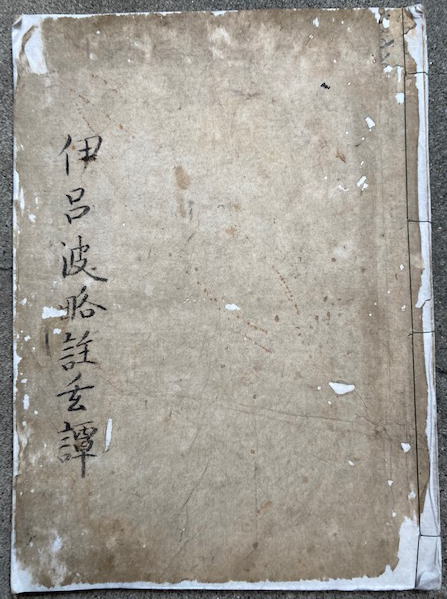 伊呂波略註玄譚